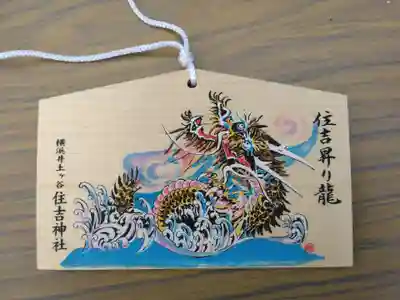 住吉昇り龍
横浜井土ヶ谷
住吉神社